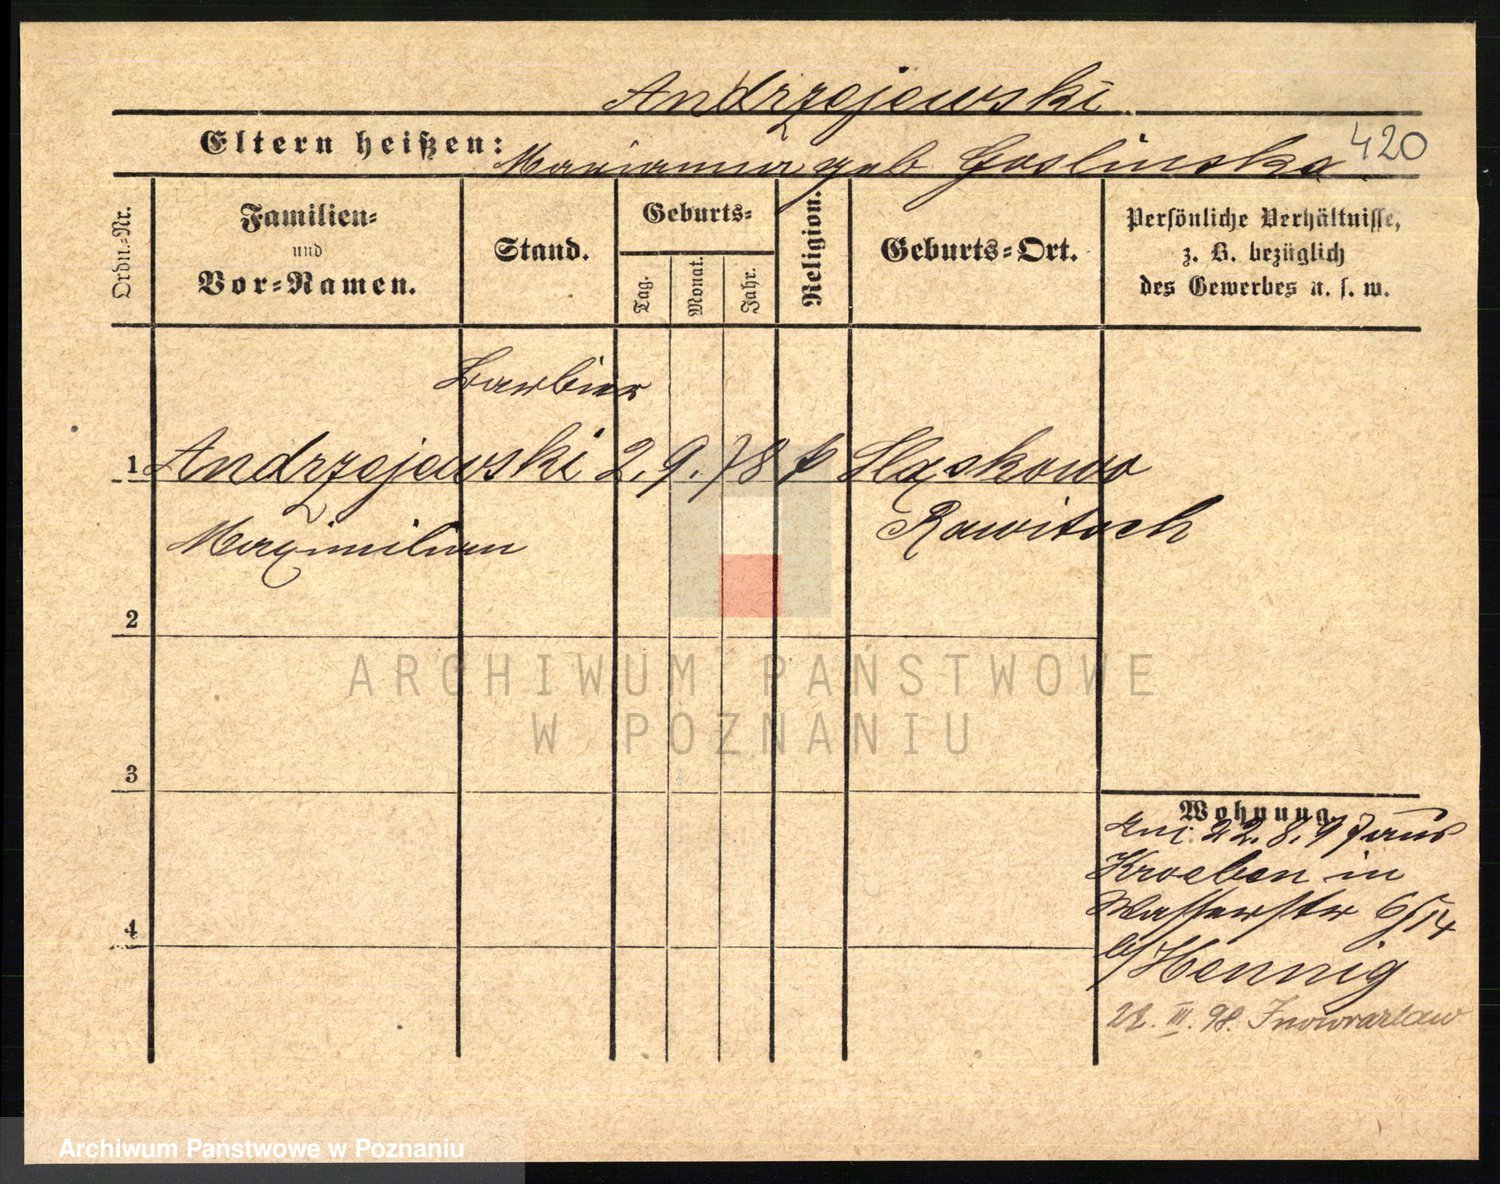 Andrzejewski
Eltern heißen:
Marianna geb Goslinska
420
Ordn.-Nr.
Familien-
und
Vor-Namen.
Stand.
Geburts-
Tag.
Monat.
Jahr.
Religion.
Geburts-Ort.
Persönliche Verhältnisse,
z. B. bezüglich
des Gewerbes u. s. w.
Barbier
1 Andrzejewski 2. 9. 78 k Slaskowo
Maximilian
Rawitsch
2
3
4
Wohnung.
22. 8. 97 aus
Kroeben in
Wasserstr 6/14
b/Hennig
22. III. 98. Inowrazlaw
ARCHIWUM PAŃSTWOWE
W POZNANIU
Archiwum Państwowe w Poznaniu